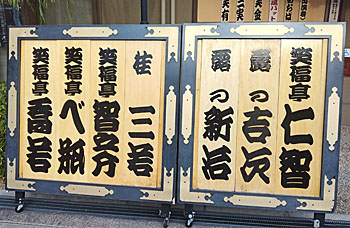 笑福亭 仁智
露の 吉次
露の 新治
桂 三若
笑福亭 智之介
笑福亭 べ瓶
笑福亭 喬若